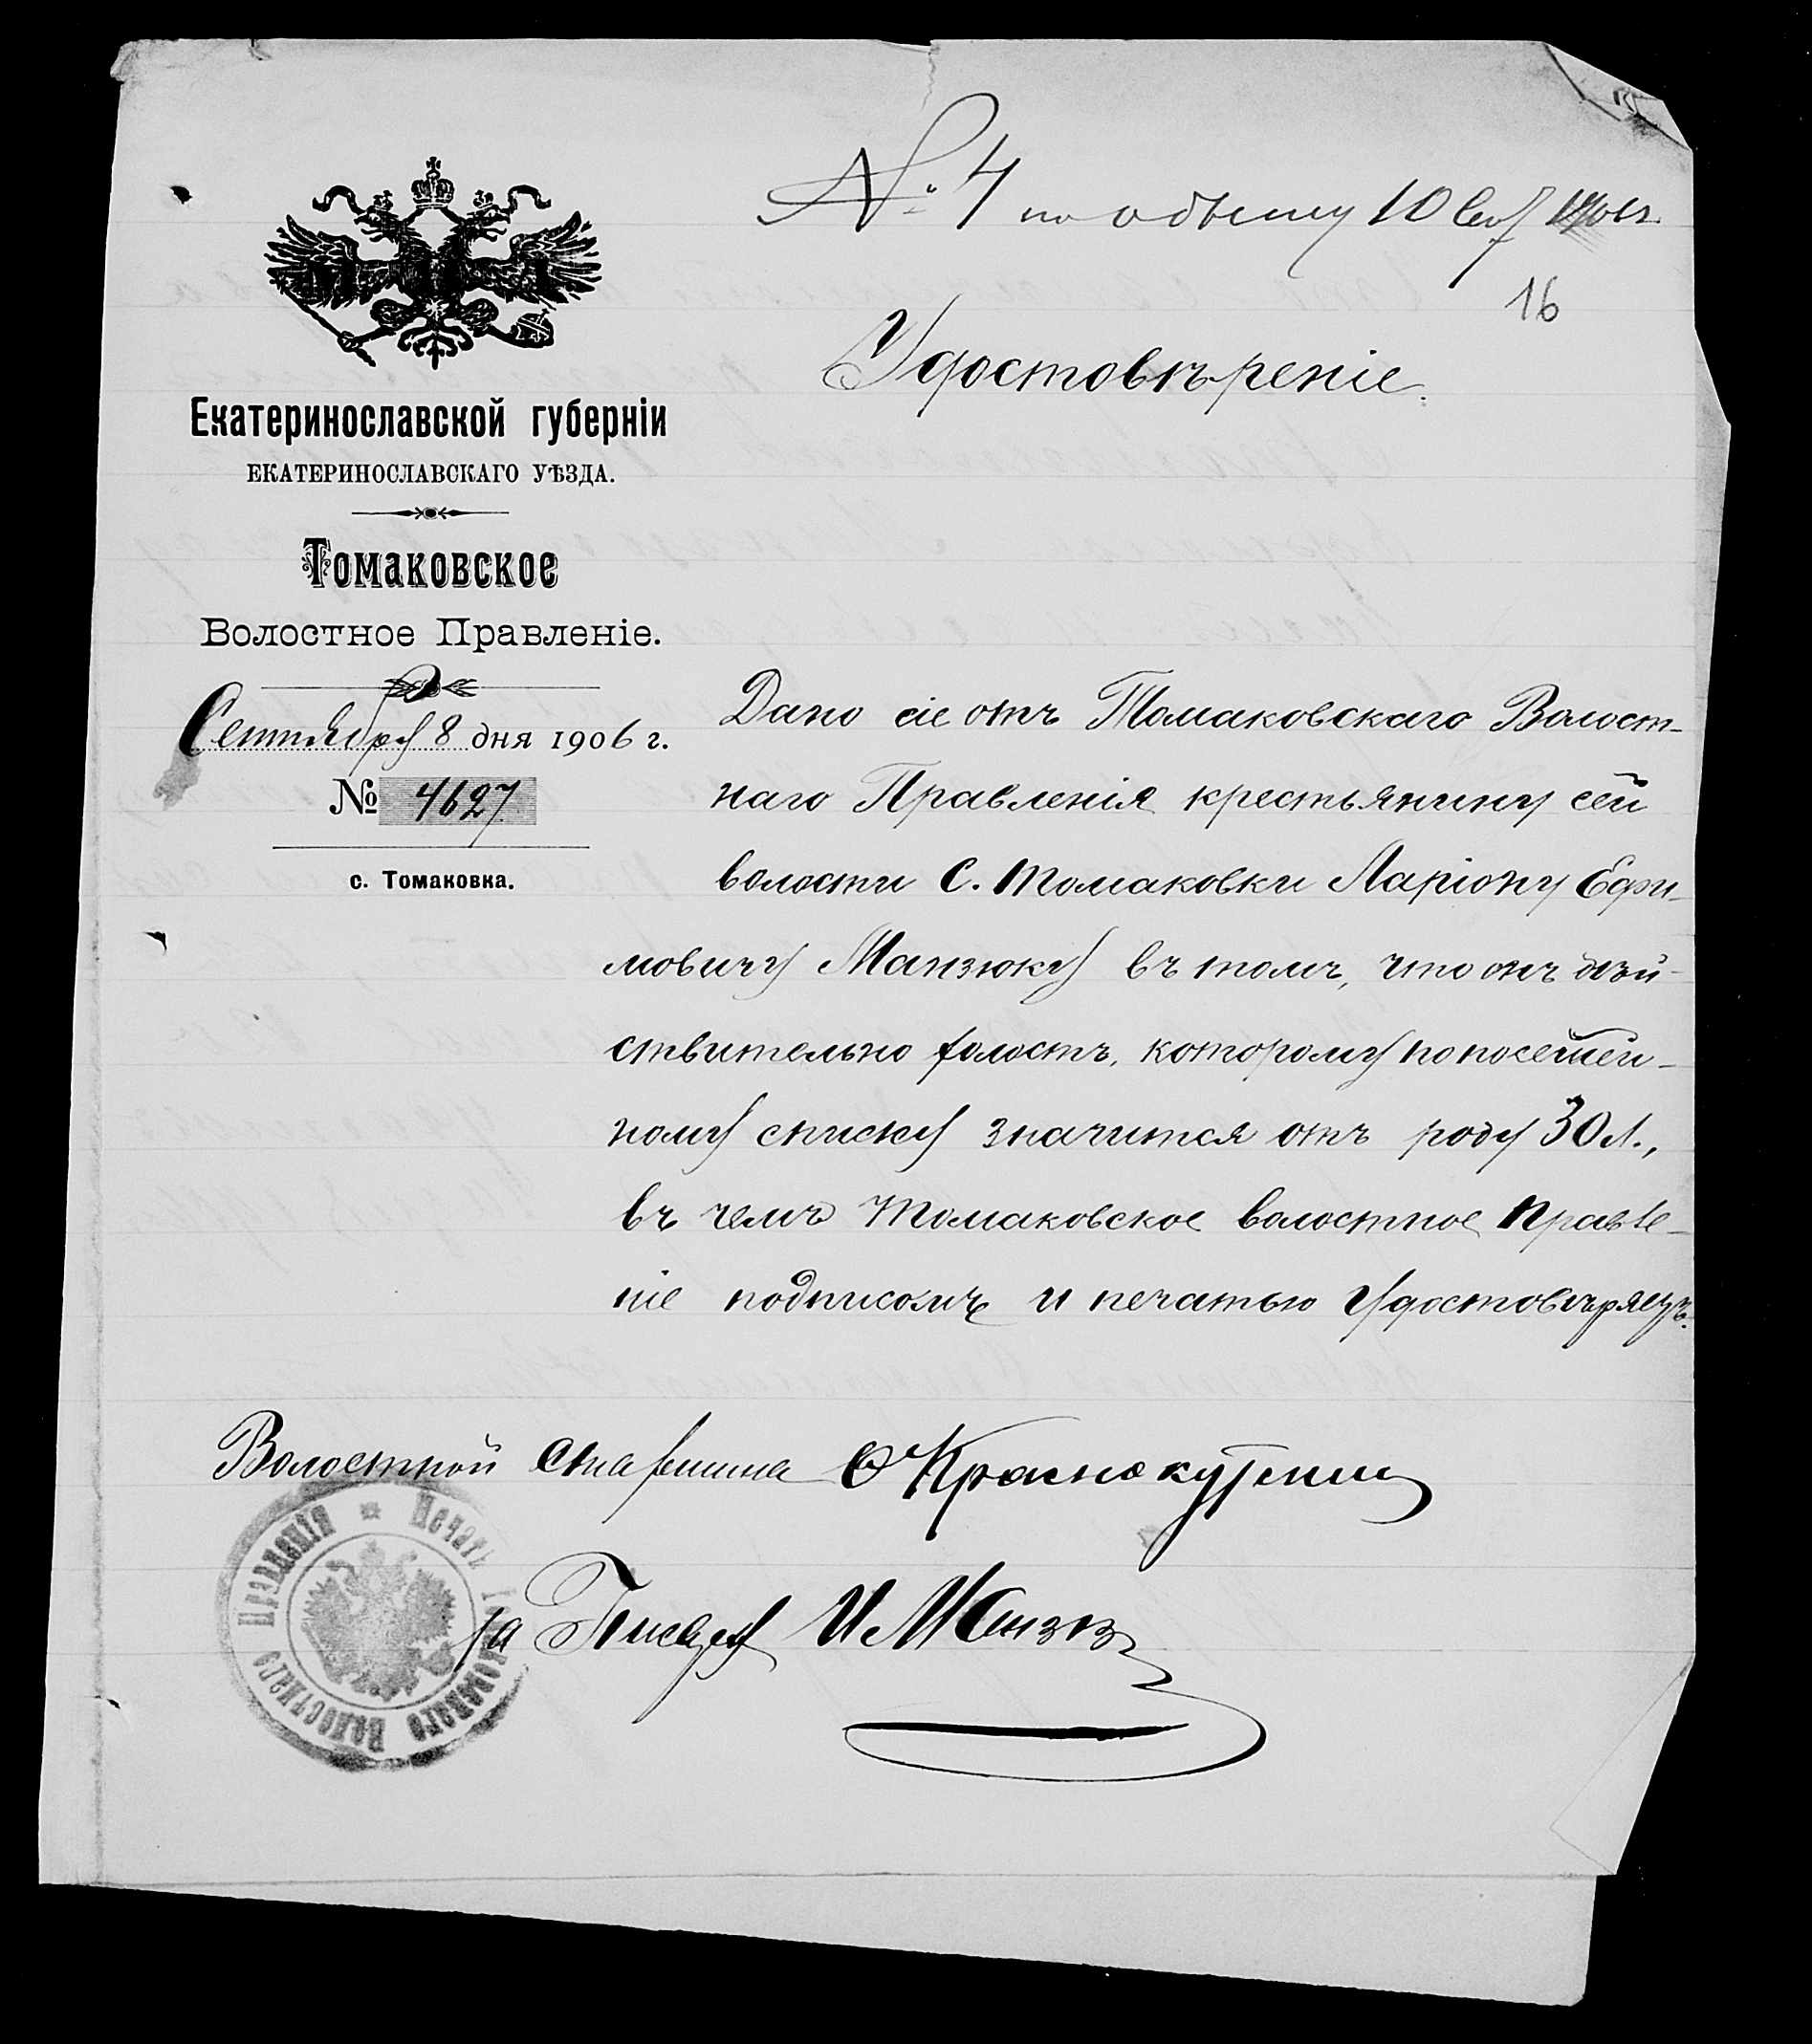 № 4 по обыску 10 Сент 1906 г.
16
Удостовѣреніе.
Екатеринославской губерніи
ЕКАТЕРИНОСЛАВСКАГО УѢЗДА.
Томаковское
Волостное Правленіе.
Сентября 8 дня 1906 г.
№ 4627
с. Томаковка.
Дано сіе отъ Томаковскаго Волост-
наго Правленія крестьянину сей
волости с. Томаковки Ларіону Ефи-
мовичу Манзюку въ томъ, что онъ дѣй-
ствительно холостъ, которому по посемей-
ному списку значится отъ роду 30 л.,
въ чемъ Томаковское волостное правле-
ніе подписомъ и печатью удостовѣряетъ.
Волостной старшина Краснокутскій
за Писаря И Манзю
Печать Томаковскаго Волостнаго Правленія